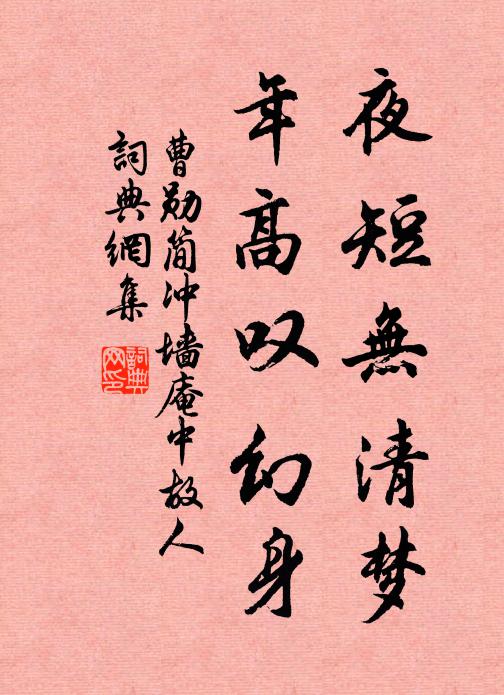 夜短無清梦
年高叹幻身
曹勋简冲墙庵中故人
詞典網集
詞典网印